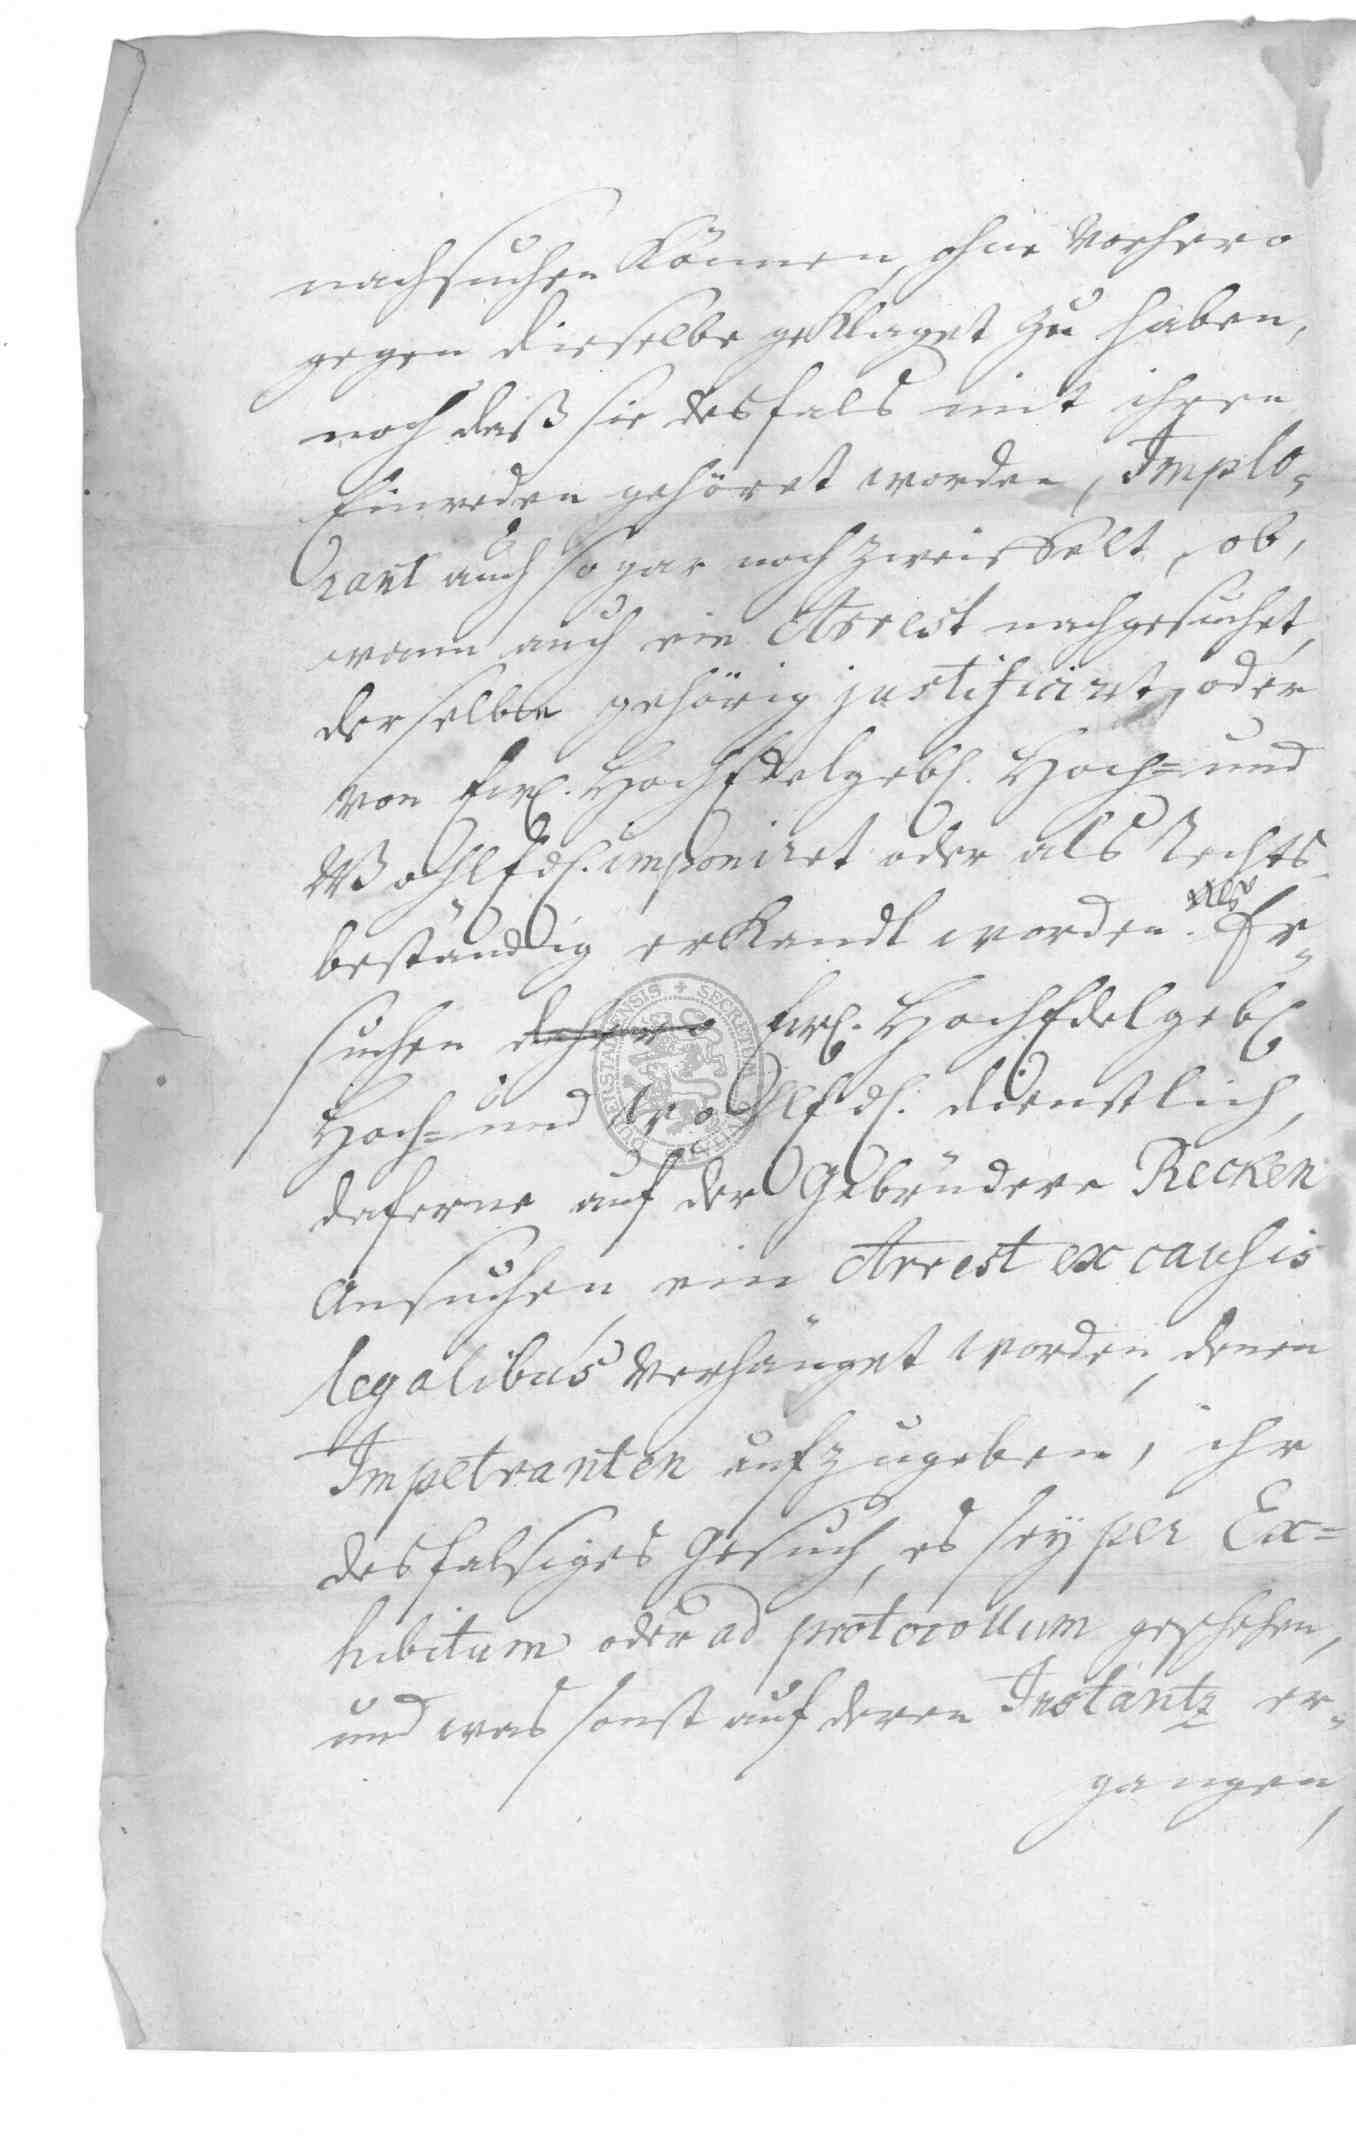 nachsuchen können, ohne vorhero
gegen dieselbe geklaget zu haben,
noch daß sie desfals mit ihren
Einreden gehöret worden, Implo-
rant auch sogar noch zweiffelt, ob,
wann auch ein Arrest nachgesuchet,
derselbe gehörig justificiret, oder
von Ew. HochEdelgeb. Hoch- und
WohlEd. imponiret oder als Rechts-
beständig erkandt worden. Er-
suchen dahero Ew. HochEdelgeb.
Hoch- und WohlEd. dienstlich,
daferne auf der Gebrüdere Recken
Ansuchen ein Arrest ex causis
legalibus verhänget worden, denen
Impetranten aufzugeben, ihr
desfalsiges Gesuch, es sey per Ex=
hibitum oder ad protocollum geschehen,
und was sonst auf deren Instantz er-
gangen,
SECRETUM